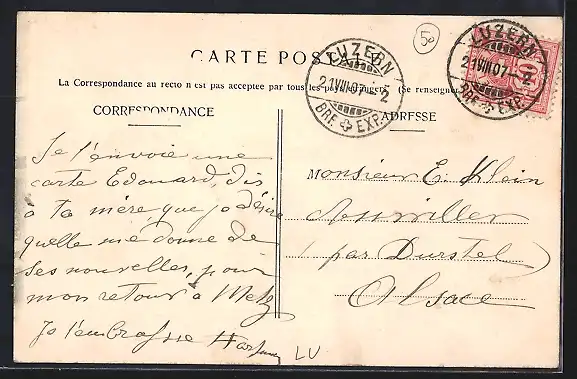 CARTE POSTALE
La Correspondance au recto n est pas acceptee par tous les pays etrangers (Se renseigner
CORRESPONDANCE
ADRESSE
50
LUZERN
21.VIII.07.-2
BRF. EXP.
LUZERN
21.VIII.07.-2
BRF. EXP.
10
Je t'envoie une
carte Edouard, dis
à ta mère que je désire
quelle me donne de
ses nouvelles, pour
mon retour à Metz
Je t'embrasse
Monsieur E. Klein
(par Durstel)
Alsace
LU